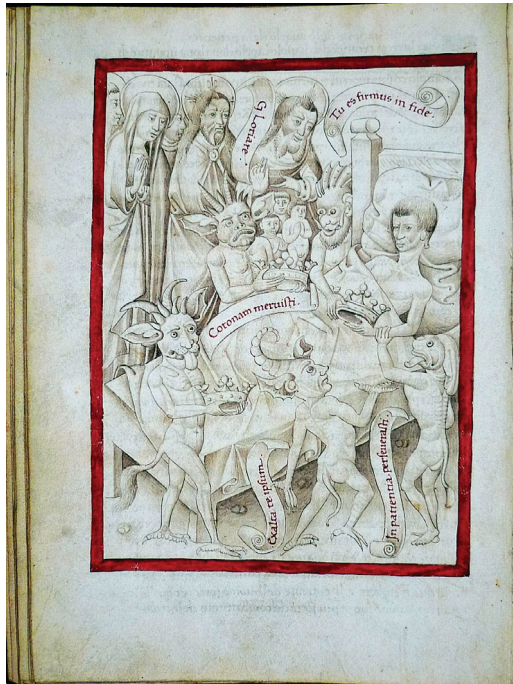 Gloriare.
Tu es firmus in fide.
Coronam meruisti.
Exalta te ipsum.
In patientia perseverasti.